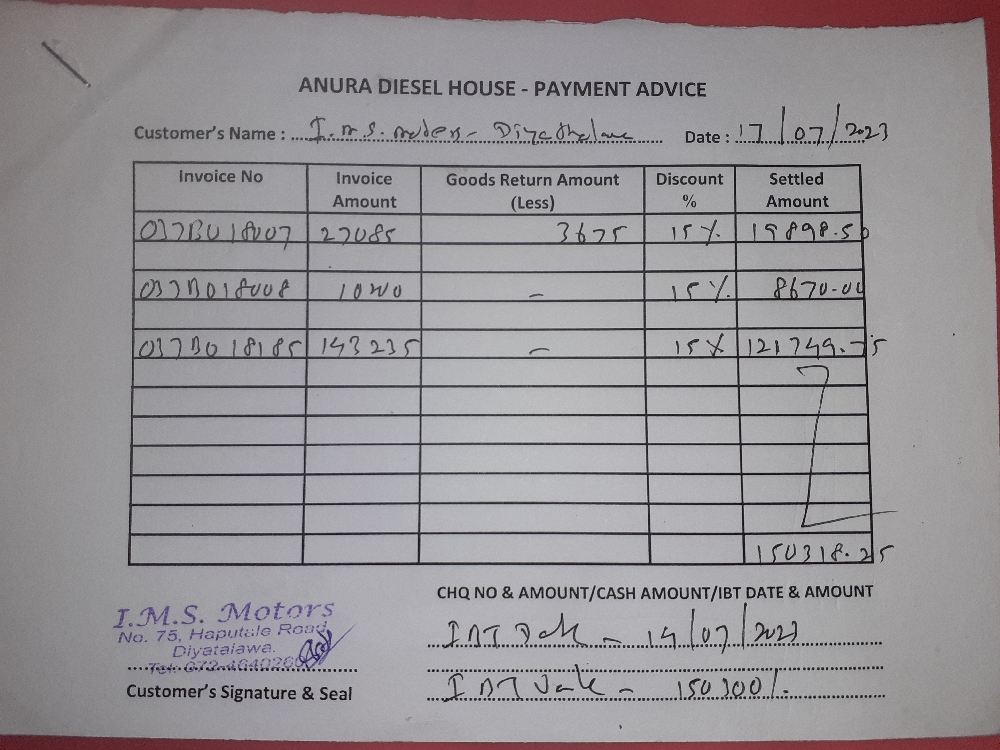 ANURA DIESEL HOUSE - PAYMENT ADVICE
Customer's Name : I.M.S. Motors - Diyathalawe Date : 17/07/2023
Invoice No Invoice Amount Goods Return Amount (Less) Discount % Settled Amount
037B018007 27085 3675 15% 19898.50
037B018008 10200 – 15% 8670-00
037B018185 143235 – 15% 121749.75
150318.25
CHQ NO & AMOUNT/CASH AMOUNT/IBT DATE & AMOUNT
I.M.S. Motors
No. 75, Haputale Road,
Diyatalawa.
IBT Date - 14/07/2023
IBT - 150300/.
Customer's Signature & Seal